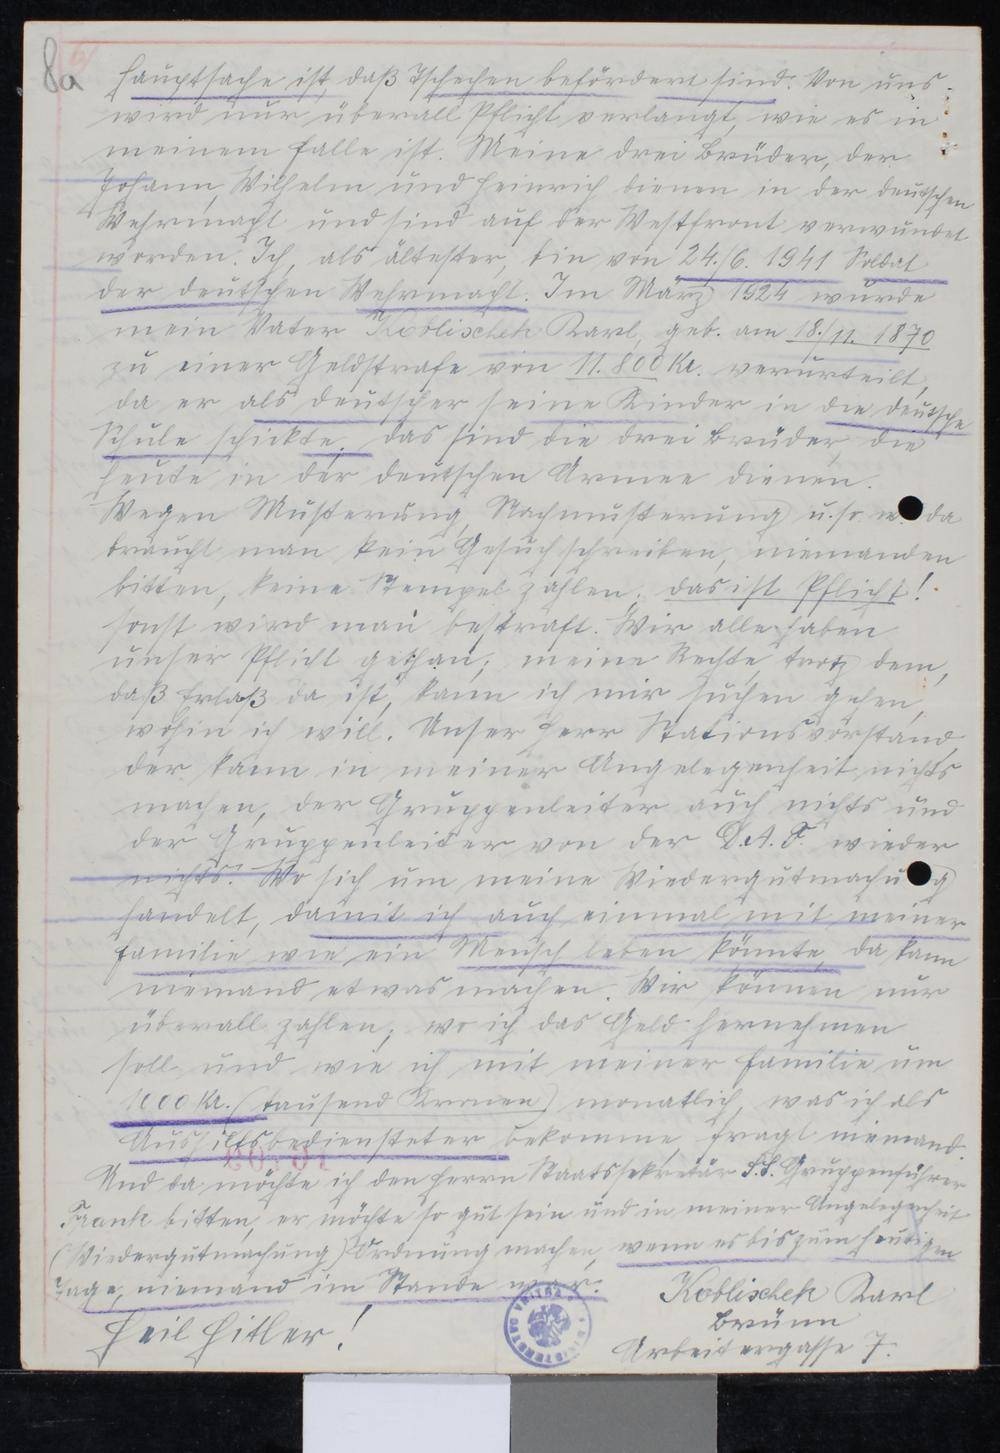 8a
Hauptsache ist, daß Tschechen befördert sind. Von uns
wird nur überall Pflicht verlangt, wie es in
meinem Falle ist. Meine drei Brüder, der
Johann, Wilhelm und Heinrich dienen in der deutschen
Wehrmacht und sind auf der Westfront verwundet
worden. Ich, als ältester, bin von 24./6. 1941 Soldat
der deutschen Wehrmacht. Im März 1924 wurde
mein Vater Koblischek Karl, geb. am 18./11. 1870
zu einer Geldstrafe von 11.800 Kr. verurteilt,
da er als deutscher seine Kinder in die deutsche
Schule schickte, das sind die drei Brüder, die
heute in der deutschen Armee dienen.
Wegen Musterung, Nachmusterung u.s. w. da
braucht man kein Gesuch schreiben, niemanden
bitten, keine Stempel zahlen, das ist Pflicht!
sonst wird man bestraft. Wir alle haben
unser Pflicht gethan; meine Rechte, trotz dem,
daß Erlaß da ist, kann ich mir suchen gehen,
wohin ich will. Unser Herr Stationsvorstand,
der kann in meiner Angelegenheit nichts
machen, der Gruppenleiter auch nichts und
der Gruppenleiter von der D.A.F. wieder
nichts. Wo sich um meine Wiedergutmachung
handelt, damit ich auch einmal mit meiner
Familie wie ein Mensch leben könnte, da kann
niemand etwas machen. Wir können nur
überall zahlen; wo ich das Geld hernehmen
soll und wie ich mit meiner Familie um
1000 Kr. (tausend Kronen) monatlich, was ich als
Aushilfsbediensteter bekomme, fragt niemand.
Und da möchte ich den Herrn Staatssekretär S.S. Gruppenführer
Frank bitten, er möchte so gut sein und in meiner Angelegenheit
(Wiedergutmachung) Ordnung machen, wenn es bis zum heutigen
Tage, niemand im Stande war.
Koblischek Karl
Heil Hitler!
Brünn
Arbeitergasse 7.